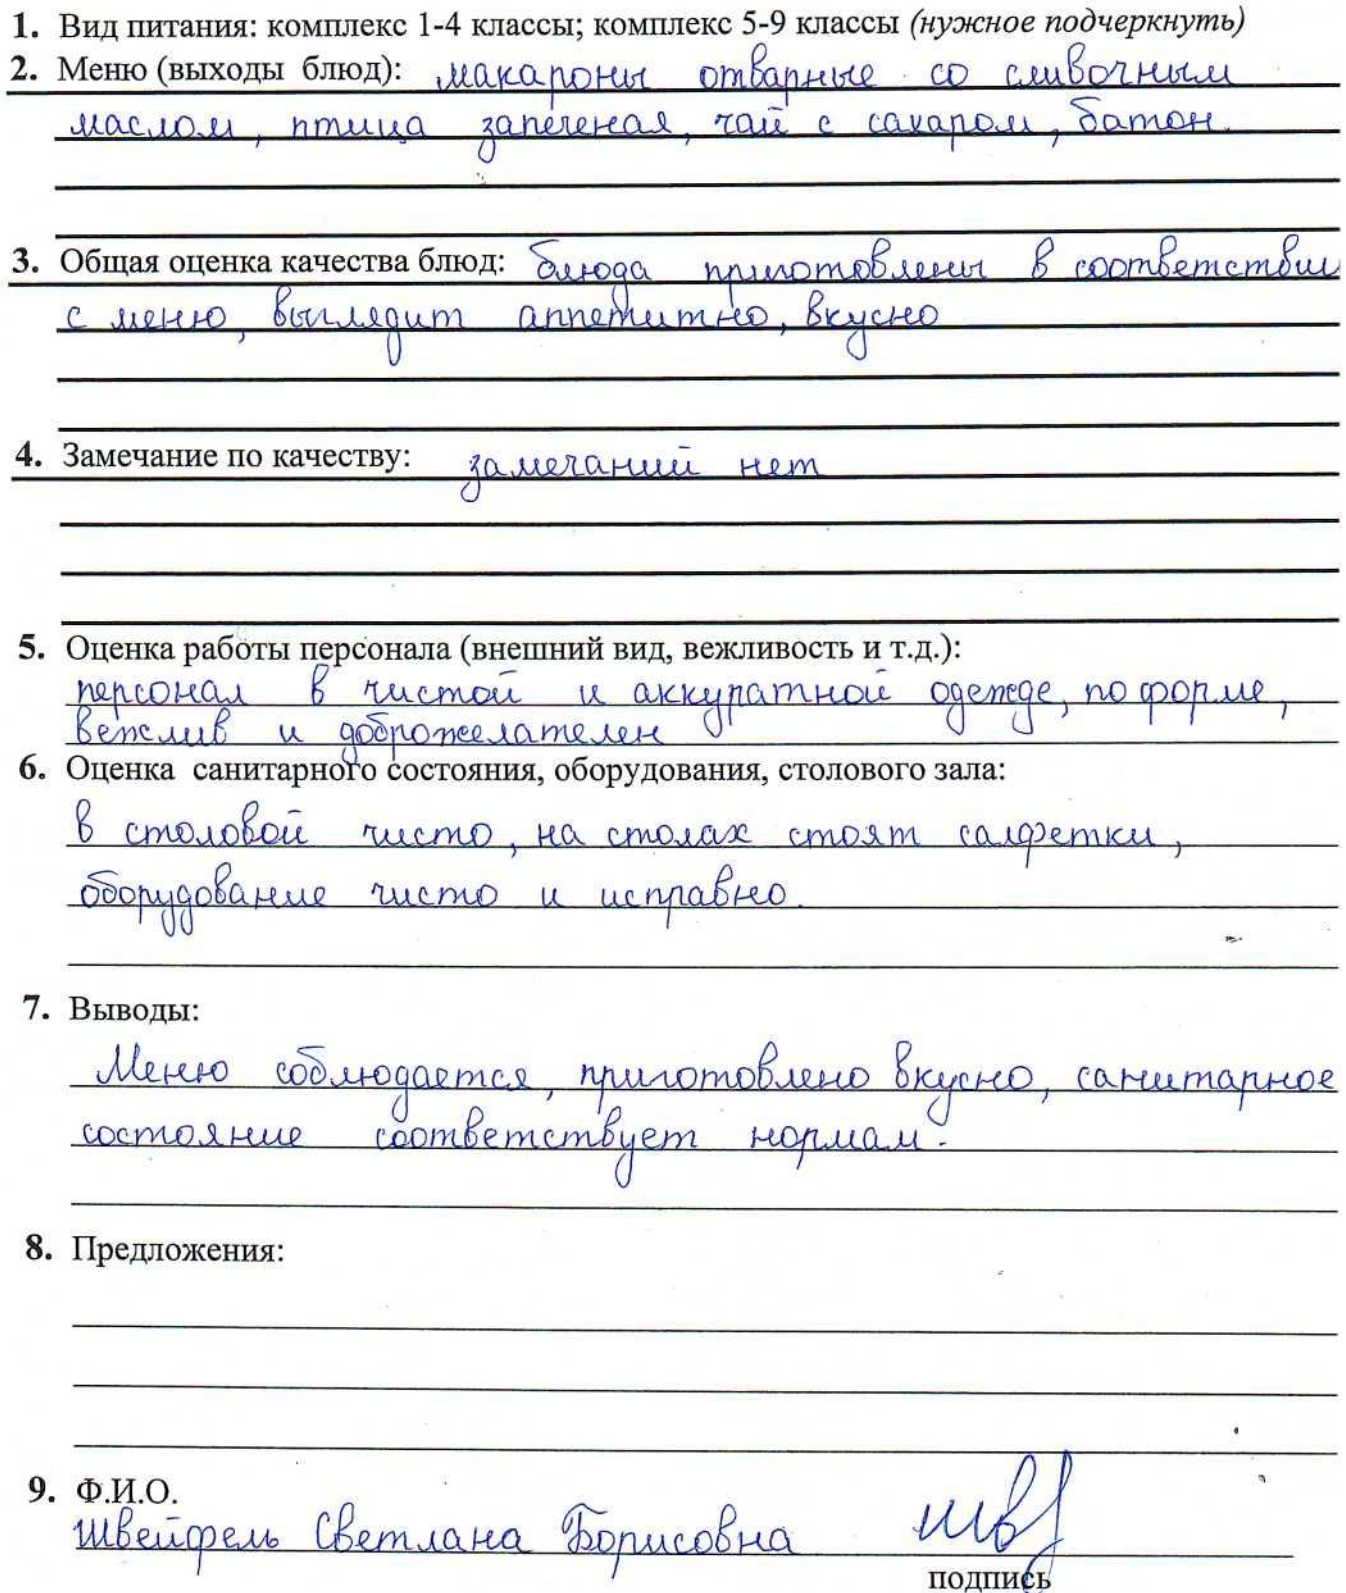 1. Вид питания: комплекс 1-4 классы; комплекс 5-9 классы (нужное подчеркнуть)
2. Меню (выходы блюд): макароны отварные со сливочным
маслом, птица запеченая, чай с сахаром, батон.
3. Общая оценка качества блюд: блюда приготовлены в соответствии
с меню, выглядит аппетитно, вкусно
4. Замечание по качеству: замечаний нет
5. Оценка работы персонала (внешний вид, вежливость и т.д.):
персонал в чистой и аккуратной одежде, по форме,
вежлив и доброжелателен
6. Оценка санитарного состояния, оборудования, столового зала:
в столовой чисто, на столах стоят салфетки,
оборудование чисто и исправно.
7. Выводы:
Меню соблюдается, приготовлено вкусно, санитарное
состояние соответствует нормам.
8. Предложения:
9. Ф.И.О.
Швейфель Светлана Борисовна
подпись